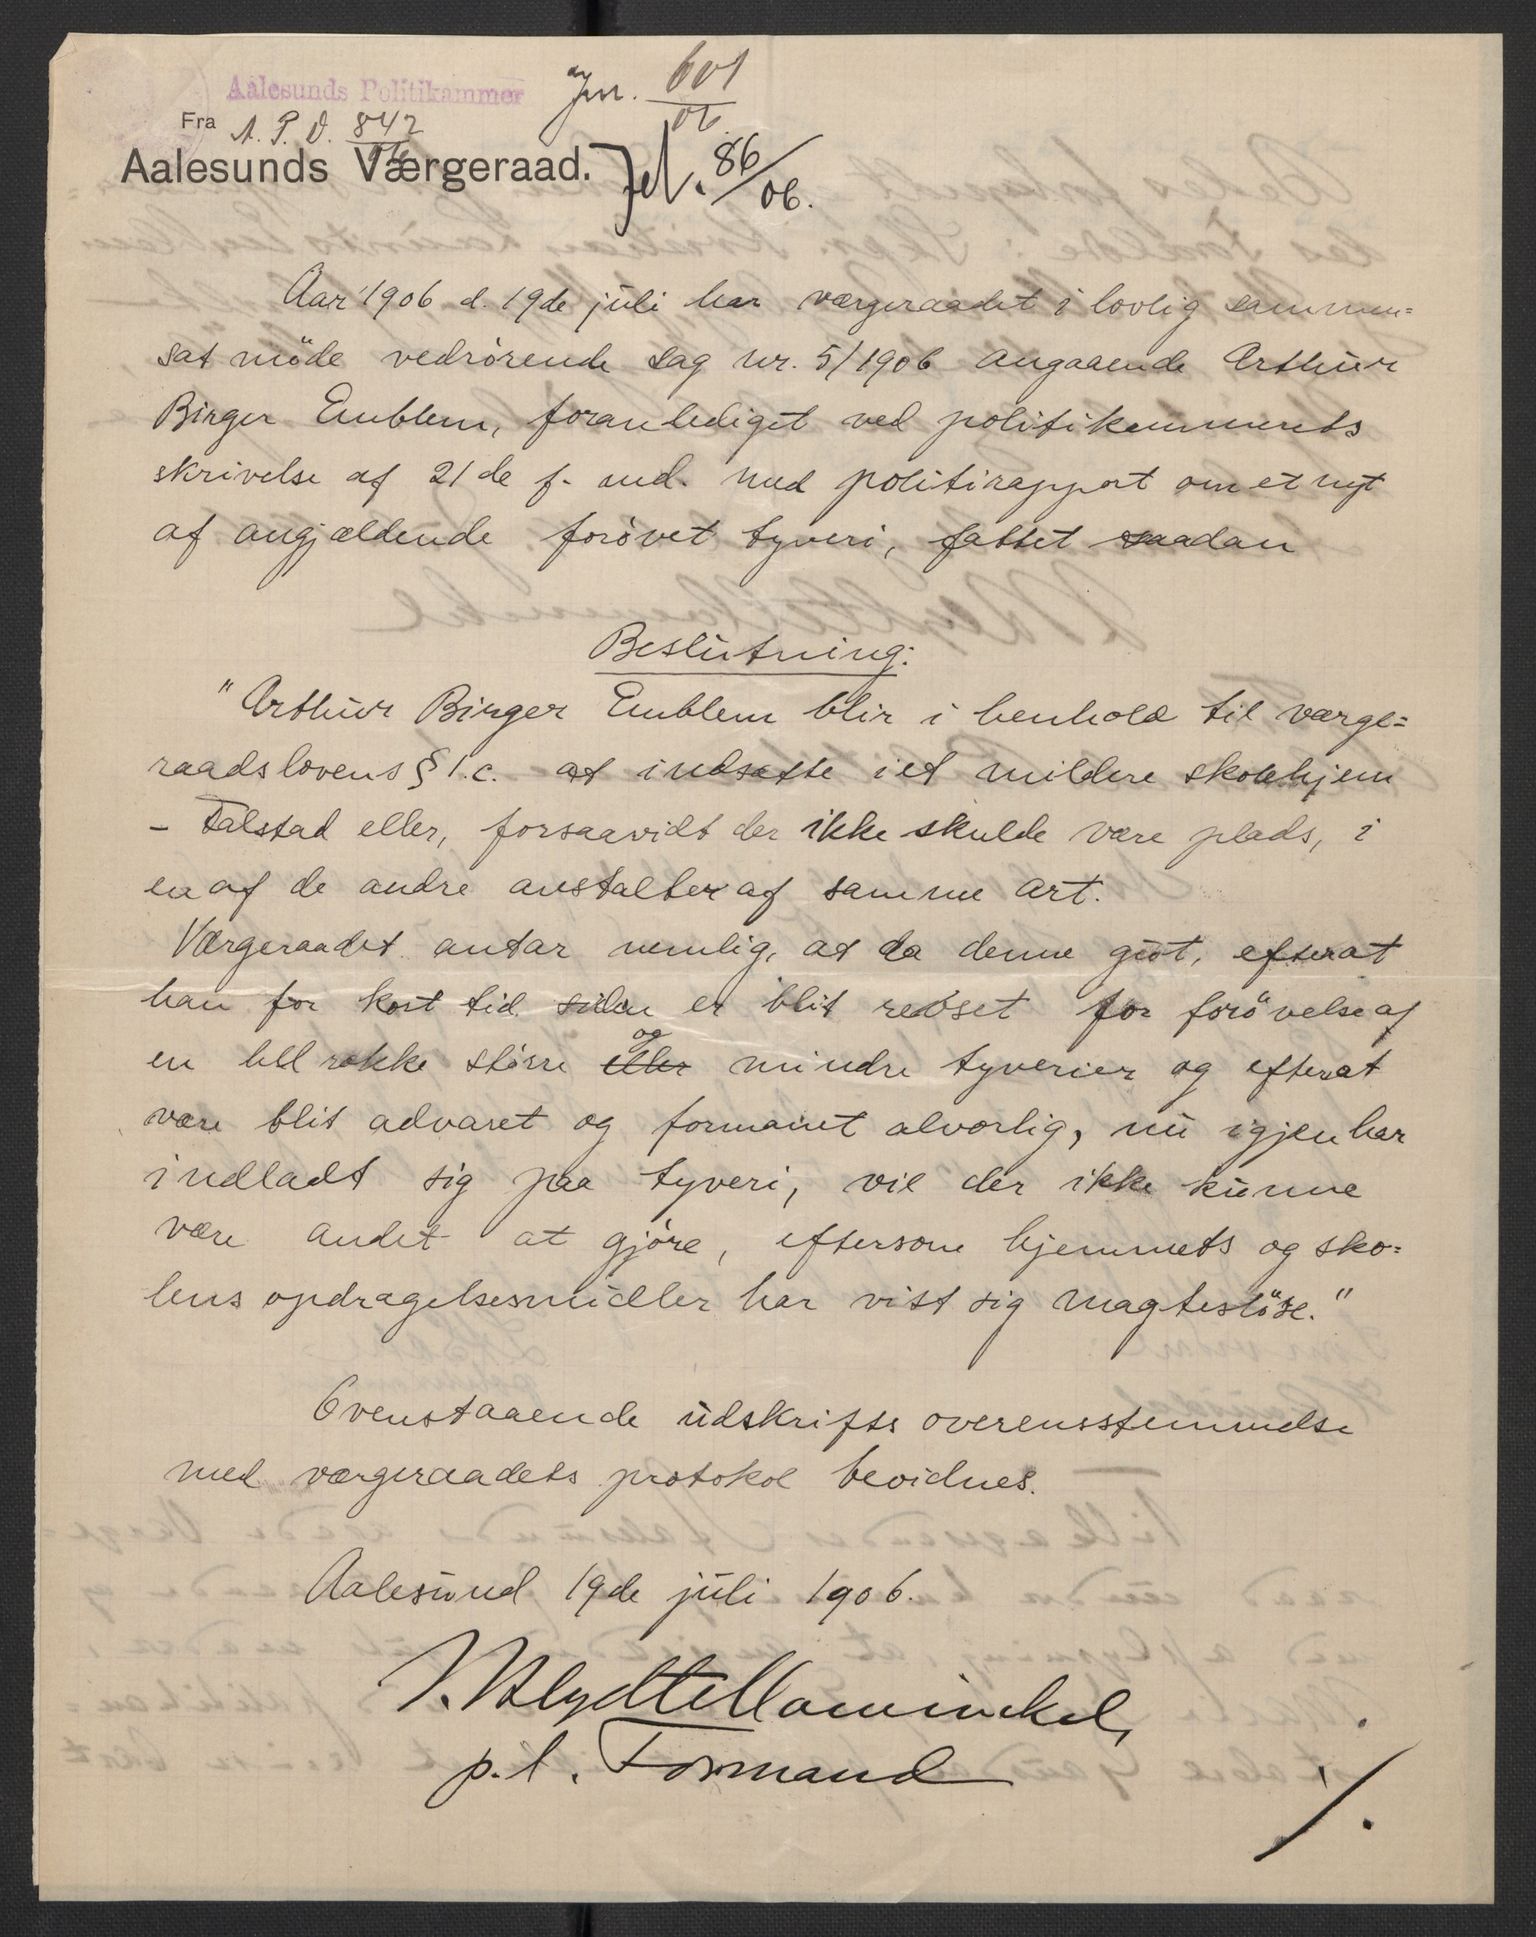 Aalesunds Politikammer
Jnr. 601/06
Fra A. P. D. 842/06
Aalesunds Værgeraad.
Jel. 86/06.
Aar 1906 d. 19de juli har værgeraadet i lovlig sammen=
sat möde vedrørende sag nr. 5/1906 angaaende Arthur
Birger Emblem, foranlediget ved politikammerets
skrivelse af 21de f. md. med politirapport om et nyt
af angjældende forøvet tyveri, fattet saadan
Beslutning:
"Arthur Birger Emblem blir i henhold til værge=
raadslovens § 1.c. at indsætte i et mildere skolehjem
- Falstad eller, forsaavidt der ikke skulde være plads, i
en af de andre anstalter af samme art.
Værgeraadet antar nemlig, at da denne gut, efterat
han for kort tid siden er blit refset for forövelse af
en hel række større eller og mindre tyverier og efterat
være blit advaret og formanet alvorlig, nu igjen har
indladt sig paa tyveri, vil der ikke kunne
være andet at gjøre, eftersom hjemmets og sko=
lens opdragelsesmidler har vist sig magteslöse."
Ovenstaaende udskrifts overensstemmelse
med værgeraadets protokol bevidnes.
Aalesund 19de juli 1906.
p.t. Formand